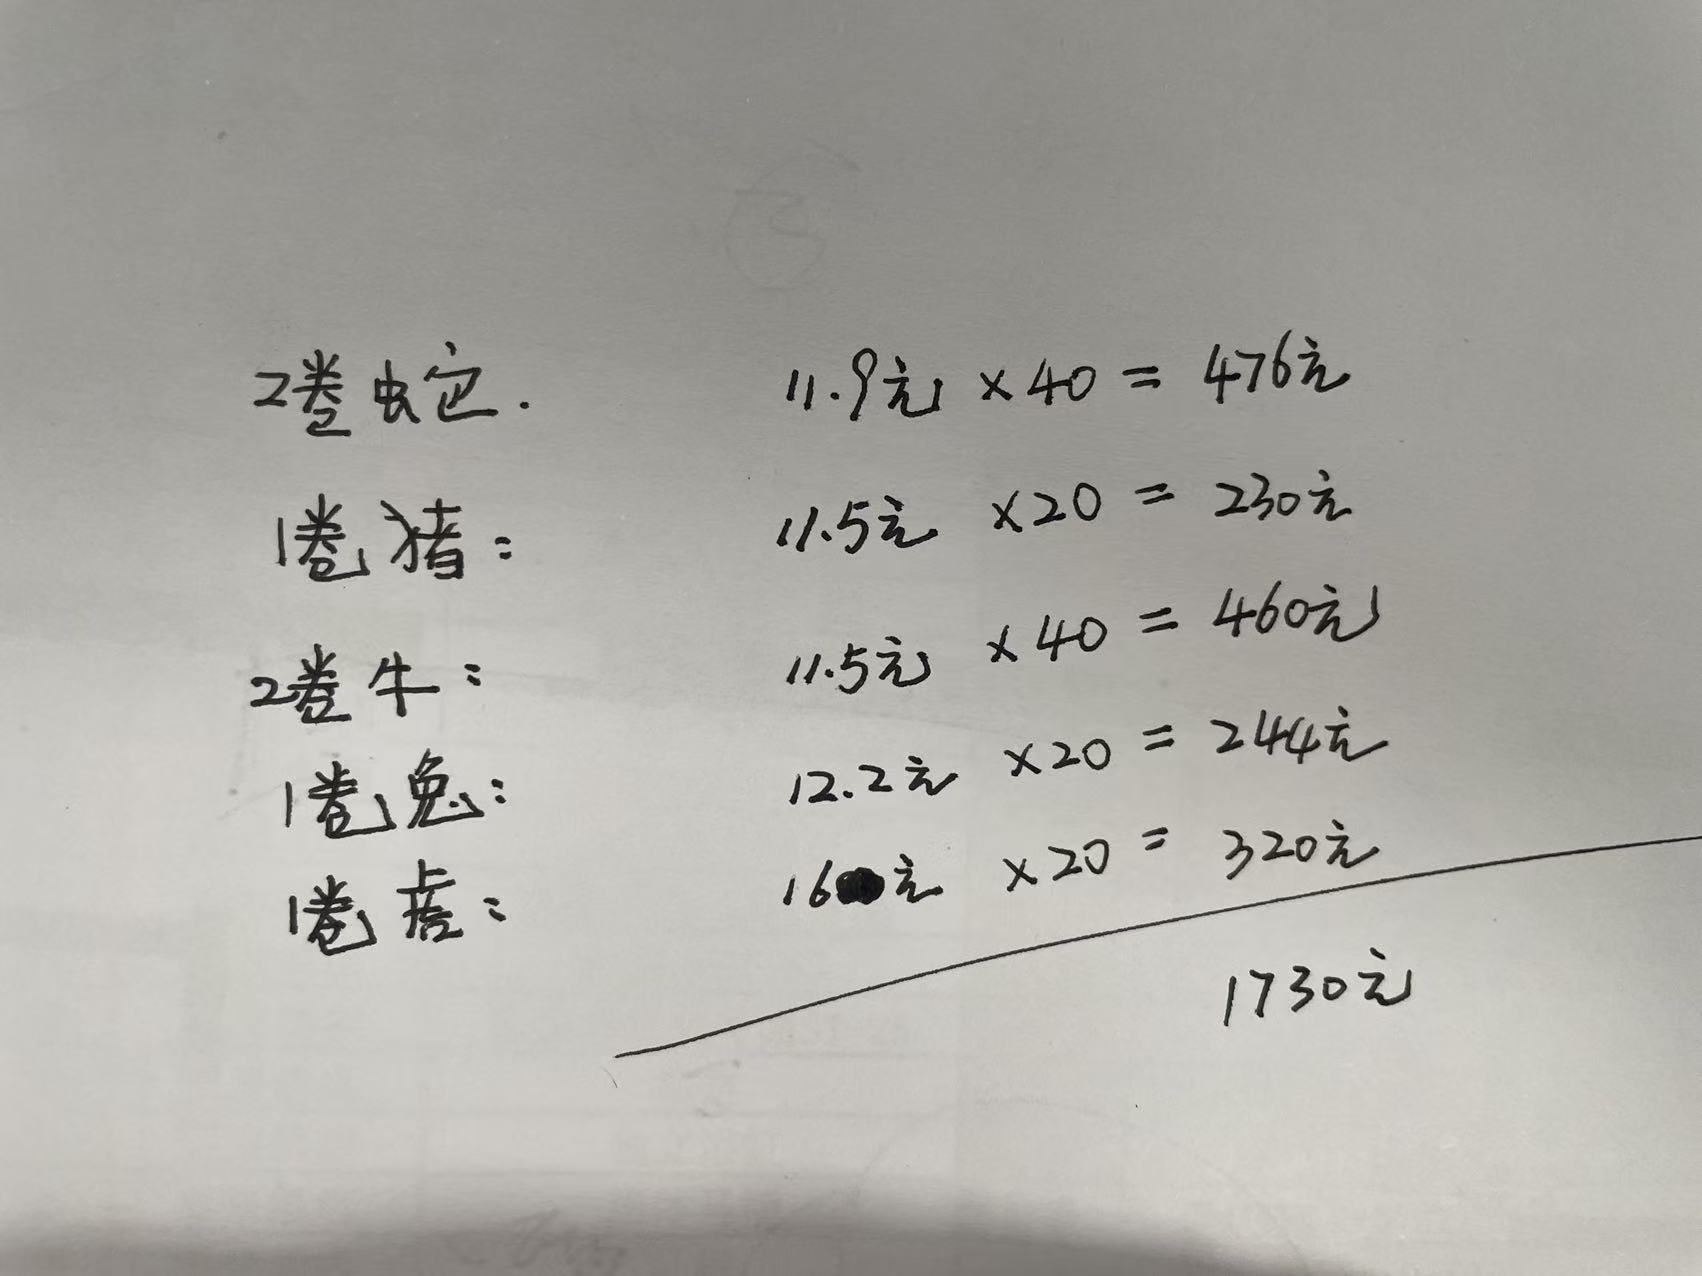 2卷蛇. 11.9元 ×40 = 476元
1卷猪: 11.5元 ×20 = 230元
2卷牛: 11.5元 ×40 = 460元
1卷兔: 12.2元 ×20 = 244元
1卷虎: 16元 ×20 = 320元
1730元